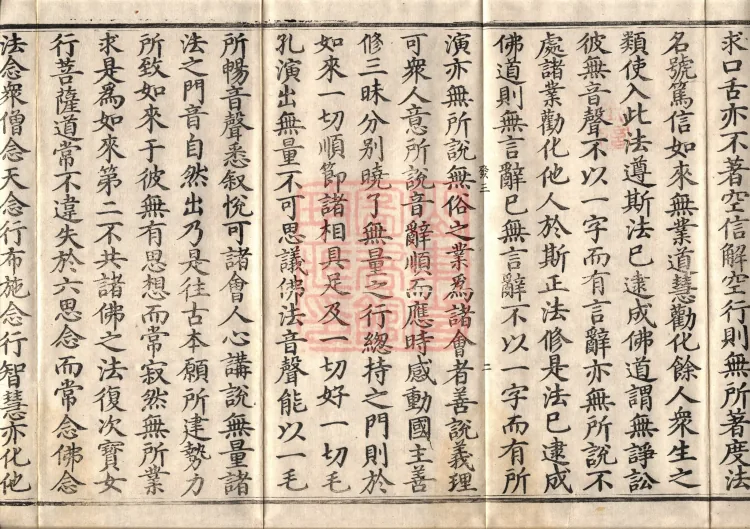 求口舌亦不著空信解空行則無所著度法
名號篤信如來無業道慧勸化餘人衆生之
類使入此法遵斯法已逮成佛道謂無諍訟
彼無音聲不以一字而有言辭亦無所說不
處諸業勸化他人於斯正法修是法已逮成
佛道則無言辭已無言辭不以一字而有所
發三
二
演亦無所說無俗之業爲諸會者善說義理
可衆人意所說音辭順而應時感動國主善
修三昧分别曉了無量之行緫持之門則於
如來一切順節諸相具足及一切好一切毛
孔演出無量不可思議佛法音聲能以一毛
所暢音聲悉叙悅可諸會人心講說無量諸
法之門音自然出乃是往古本願所建勢力
所致如來于彼無有思想而常寂然無所業
求是爲如來第二不共諸佛之法復次寶女
行菩薩道常不違失於六思念而常念佛念
法念衆僧念天念行布施念行智慧亦化他